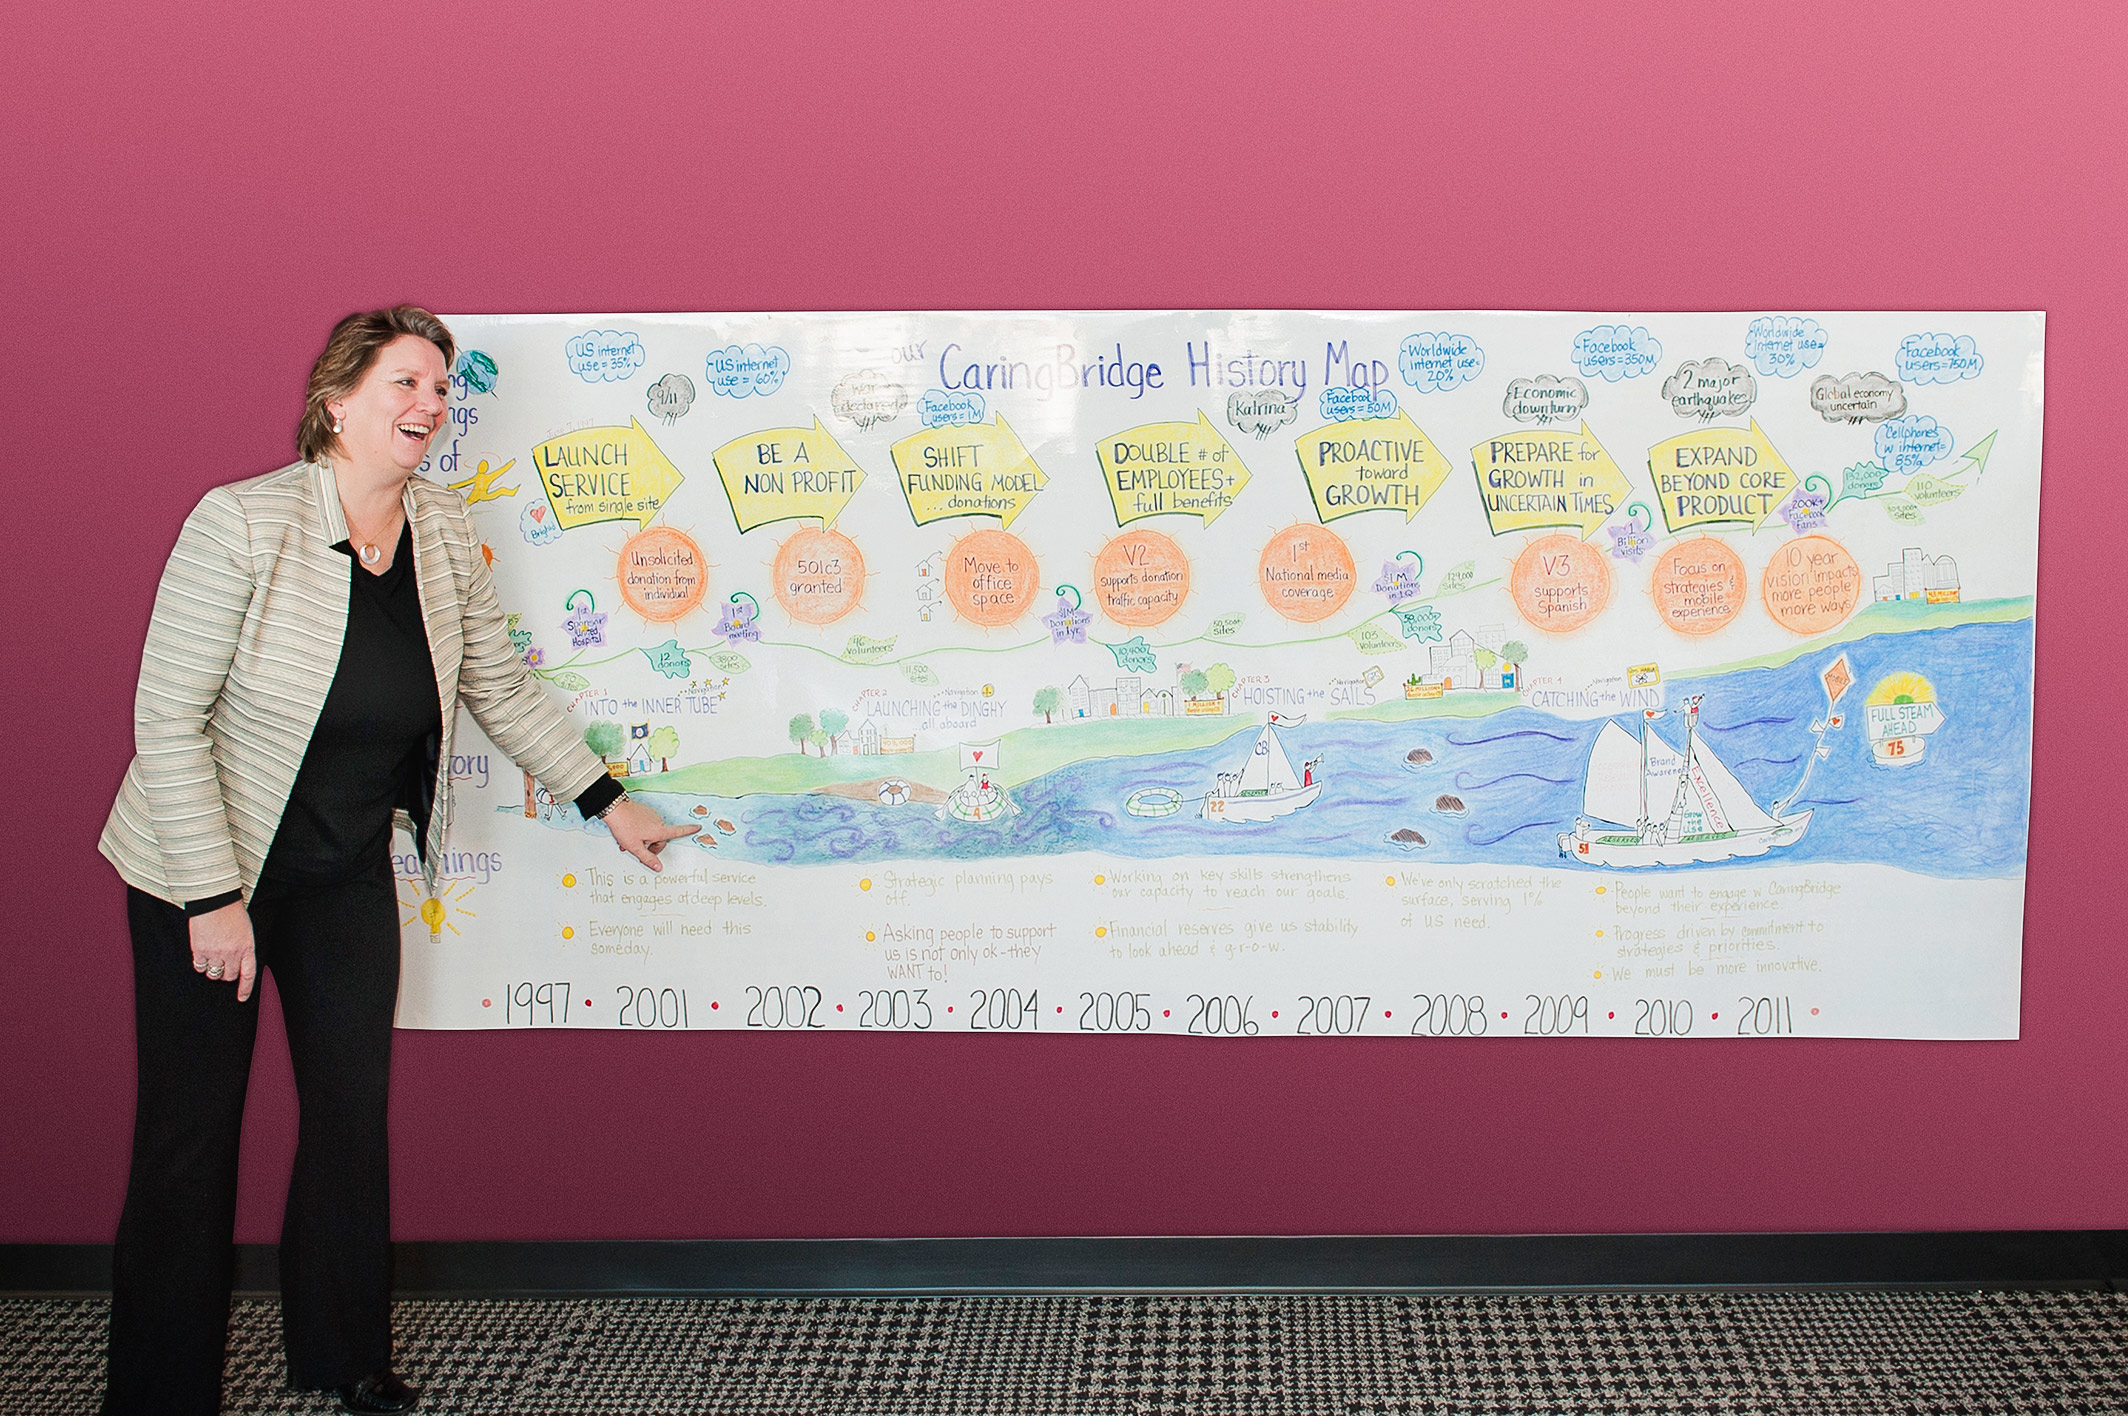 our CaringBridge History Map
US internet
use = 35%
9/11
US internet
use = 60%
War
declared
Facebook
users = 1M
Katrina
Facebook
users = 50M
Worldwide
internet use =
20%
Economic
downturn
Facebook
users = 350M
2 major
earthquakes
Worldwide
internet use =
30%
Global economy
uncertain
Facebook
users = 750M
Cellphones
w internet =
85%
ng
ngs
s of
LAUNCH
SERVICE
from single site
BE A
NON PROFIT
SHIFT
FUNDING MODEL
... donations
DOUBLE # of
EMPLOYEES +
full benefits
PROACTIVE
toward
GROWTH
PREPARE for
GROWTH in
UNCERTAIN TIMES
EXPAND
BEYOND CORE
PRODUCT
Unsolicited
donation from
individual
501c3
granted
Move to
office
space
V2
supports donation
traffic capacity
1st
National media
coverage
V3
supports
Spanish
Focus on
strategies &
mobile
experience
10 year
vision impacts
more people
more ways
1st
Sponsor
United
Hospital
12
donors
1st
Board
meeting
3800
sites
46
volunteers
11,500
sites
$1M
Donations
in 1 yr
10,400
donors
103
volunteers
$1M
Donations
in 1Q
donors
129,000
sites
1
Billion
visits
200K+
Facebook
Fans
132,000
donors
110
volunteers
sites
CHAPTER 1
INTO the INNER TUBE
Navigation
CHAPTER 2
LAUNCHING the DINGHY
all aboard
Navigation
CHAPTER 3
HOISTING the SAILS
Navigation
CHAPTER 4
CATCHING the WIND
Navigation
4
CB
22
Brand
Awareness
Excellence
51
MOBILE
FULL STEAM
AHEAD
75
tory
earnings
This is a powerful service
that engages at deep levels.
Everyone will need this
someday.
Strategic planning pays
off.
Asking people to support
us is not only ok - they
WANT to!
Working on key skills strengthens
our capacity to reach our goals.
Financial reserves give us stability
to look ahead & g-r-o-w.
We've only scratched the
surface, serving 1%
of US need.
People want to engage w CaringBridge
beyond their experience.
Progress driven by commitment to
strategies & priorities.
We must be more innovative.
1997 • 2001 • 2002 • 2003 • 2004 • 2005 • 2006 • 2007 • 2008 • 2009 • 2010 • 2011